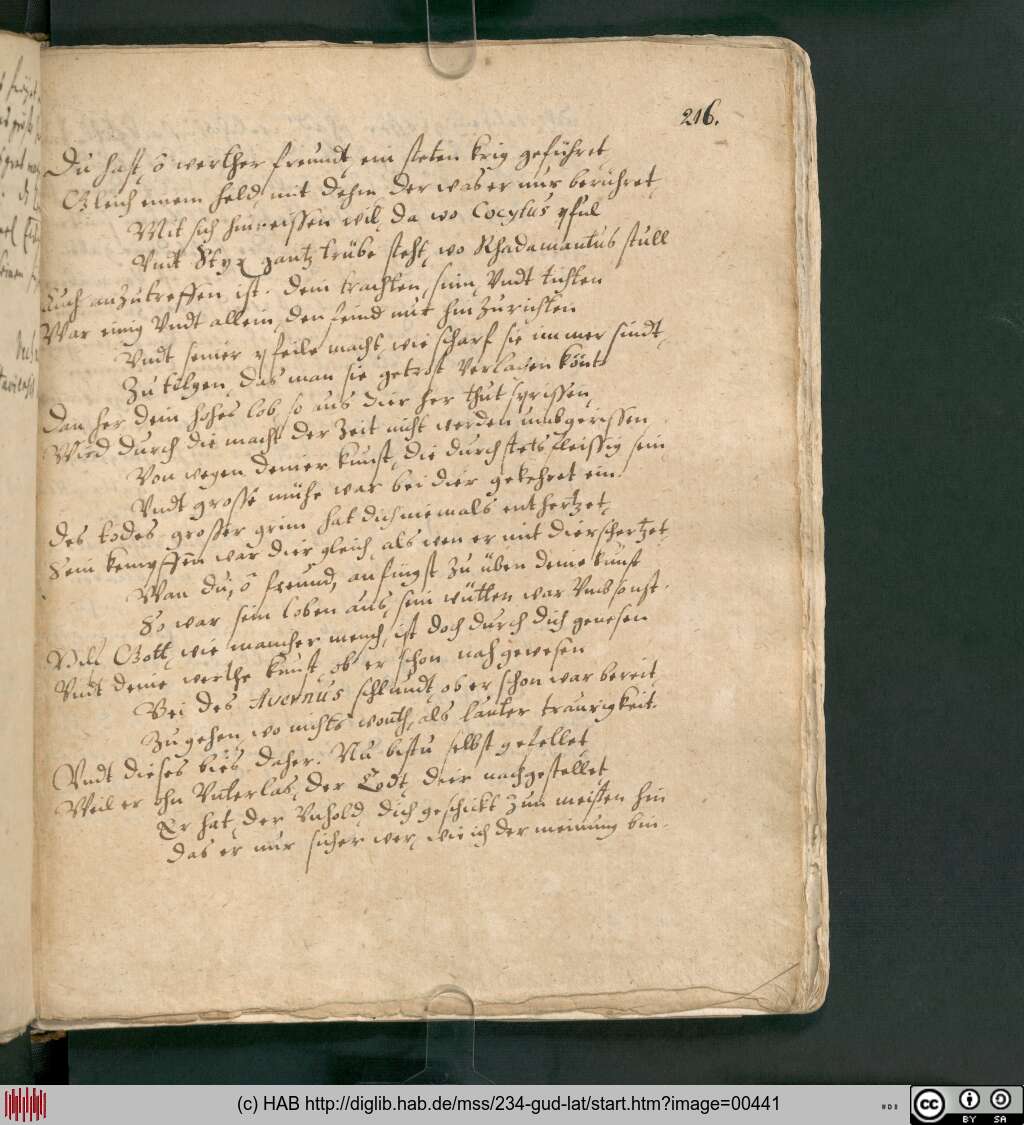 216.
Du hast, ô werther freundt, ein steten krig geführet,
Gleich einem held, mit dehm der was er nur berühret,
Mit sich hinreissen wil, da wo Cocytus pful
Vndt Styx gantz trübe steht, wo Rhadamantus stull
Auch anzutreffen ist. dein trachten, sinn, Vndt tichten
War einig Vndt allein, den feind nur hin Zurichten
Vndt seiner pfeile macht, wie scharf sie immer sindt,
Zu tilgen, das man sie getrost Verlachen könt
Dan her dein hohes lob, so aus dier her thut sprissen,
Wird durch die macht der Zeit nicht werden umbgerissen,
Von wegen deiner kunst, die durch stets fleissig sein
Vndt grosse mühe war bei dier gekehret ein.
Des todes grosser grim hat dich niemals enthertzet,
Sein kempffen war dier gleich, als wen er mit dier schertzet,
Wan du, ô freund, anfingst Zu üben deine kunst
So war sein toben aus, sein wütten war Vmbsonst.
Hilf Gott, wie mancher mench, ist doch durch dich genesen
Vndt deine werthe kunst, ob er schon nah gewesen
Bei des Avernus schlundt, ob er schon war bereit,
Zu gehen, wo nichts wonth, als lauter traurigkeit.
Vndt dieses bies daher. Nu bistu selbst gefellet
Weil er ohn Vnterlas, der Todt, dier nachgestellet
Er hat, der Vnhold, dich geschickt zum meisten hin
Das er nur sicher wer, wie ich der meinung bin.
(c) HAB http://diglib.hab.de/mss/234-gud-lat/start.htm?image=00441
cc BY SA